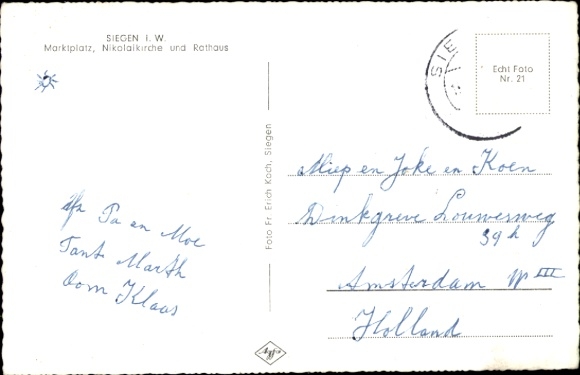 SIEGEN i. W.
Marktplatz, Nikolaikirche und Rathaus
Echt Foto
Nr. 21
SIE
Foto Fr. Erich Koch, Siegen
Miep en Joke en Koen
Dinkgreve Louwersweg
39 h
Amsterdam W III
Holland
Pa en Moe
Tante Marth
Oom Klaas
Agfa